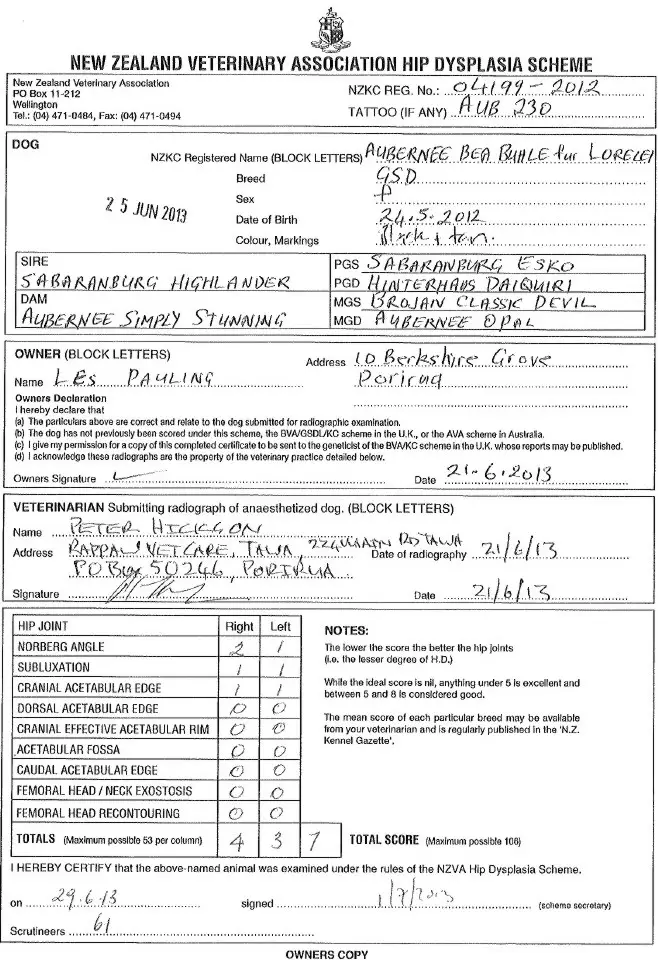 NEW ZEALAND VETERINARY ASSOCIATION HIP DYSPLASIA SCHEME
New Zealand Veterinary Association
PO Box 11-212
Wellington
Tel.: (04) 471-0484, Fax: (04) 471-0494
NZKC REG. No.: 04199-2012
TATTOO (IF ANY) AUB 230
DOG
NZKC Registered Name (BLOCK LETTERS) AUBERNEE BEA BUHLE fur LORELEI
Breed GSD
Sex f
25 JUN 2013
Date of Birth 24.5.2012
Colour, Markings Black & tan.
SIRE
SABARANBURG HIGHLANDER
DAM
AUBERNEE SIMPLY STUNNING
PGS SABARANBURG ESKO
PGD HINTERHAUS DAIQUIRI
MGS BROJAN CLASSIC DEVIL
MGD AUBERNEE OPAL
OWNER (BLOCK LETTERS)
Name LES PAULING
Address 10 Berkshire Grove
Porirua
Owners Declaration
I hereby declare that
(a) The particulars above are correct and relate to the dog submitted for radiographic examination.
(b) The dog has not previously been scored under this scheme, the BVA/GSDL/KC scheme in the U.K., or the AVA scheme in Australia.
(c) I give my permission for a copy of this completed certificate to be sent to the geneticist of the BVA/KC scheme in the U.K. whose reports may be published.
(d) I acknowledge these radiographs are the property of the veterinary practice detailed below.
Owners Signature
Date 21.6.2013
VETERINARIAN Submitting radiograph of anaesthetized dog. (BLOCK LETTERS)
Name PETER HICKSON
Address RAPPAW VETCARE, TAWA, MAIN RD TAWA
PO Box 50246, PORIRUA
Date of radiography 21/6/13
Signature
Date 21/6/13
HIP JOINT Right Left
NORBERG ANGLE 2 1
SUBLUXATION 1 1
CRANIAL ACETABULAR EDGE 1 1
DORSAL ACETABULAR EDGE 0 0
CRANIAL EFFECTIVE ACETABULAR RIM 0 0
ACETABULAR FOSSA 0 0
CAUDAL ACETABULAR EDGE 0 0
FEMORAL HEAD / NECK EXOSTOSIS 0 0
FEMORAL HEAD RECONTOURING 0 0
TOTALS (Maximum possible 53 per column) 4 3 7 TOTAL SCORE (Maximum possible 106)
NOTES:
The lower the score the better the hip joints
(i.e. the lesser degree of H.D.)
While the ideal score is nil, anything under 5 is excellent and
between 5 and 8 is considered good.
The mean score of each particular breed may be available
from your veterinarian and is regularly published in the 'N.Z.
Kennel Gazette'.
I HEREBY CERTIFY that the above-named animal was examined under the rules of the NZVA Hip Dysplasia Scheme.
on 29.6.13 signed 1/7/2013 (scheme secretary)
Scrutineers 61
OWNERS COPY